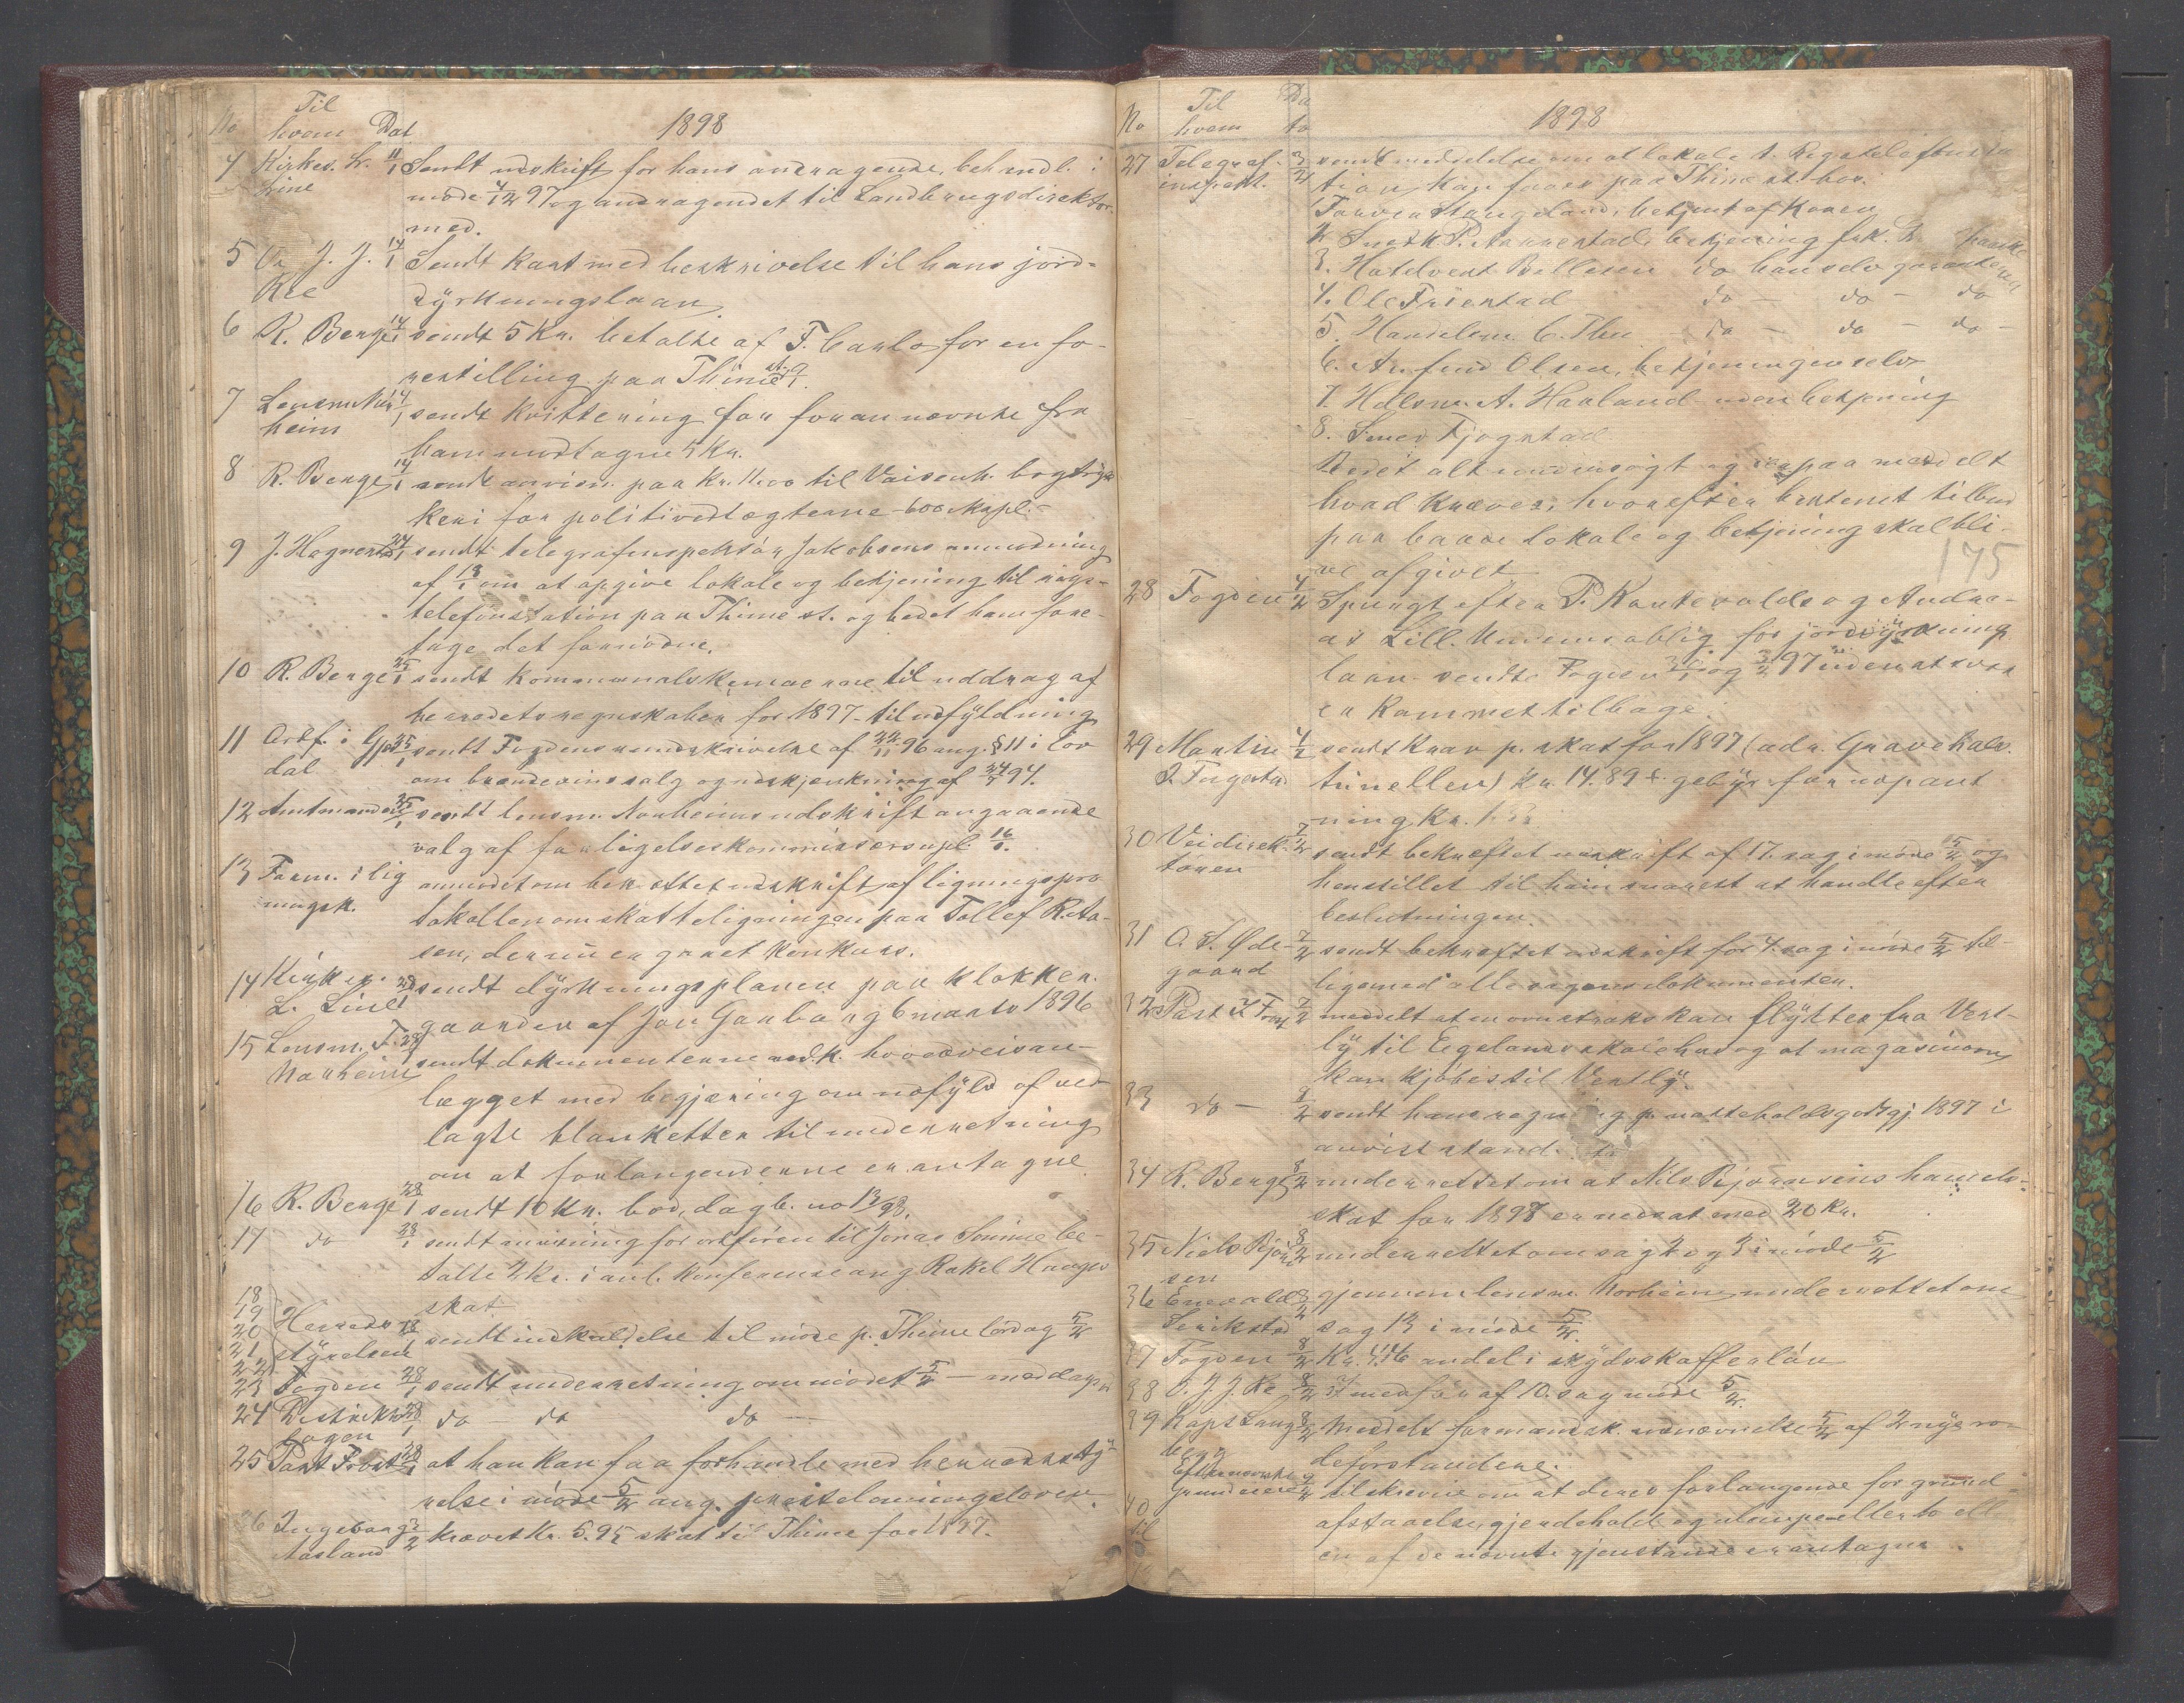 No Til hvem Dat 1898
4 Kirkes. L. 11/1 Sendt udskrift for hans andragende, behandl. i
Line møde 4/12 97 og andragendet til Landbrugsdirektør.
med.
5 O. J. J. 14/1 Sendt kart med beskrivelse til hans jord-
Ree dyrkningslaan.
6 R. Berge 14/1 sendt 5 Kr. betalte af F. Carlo for en fo-
restilling paa Thime st. 9/1.
7 Lensm. Nor 14/1 sendt kvittering for forannævnte fra
heim ham modtagne 5 Kr.
8 R. Berge 14/1 sendt anvisn. paa Kr. 11.00 til Vaisenh. bogtryk
keri for politivedtægterne - 600 expl. -
9 J. Hognestad 24/1 sendt telegrafinspektør Jakobsens anmodning
af 13/1 om at opgive lokale og betjening til rigs-
telefonstation paa Thime st. og bedet ham fore-
tage det fornødne.
10 R. Berge 25/1 sendt kommunalskemaerne til uddrag af
herredets regnskaber for 1897 - til udfyldning
11 Ordf. i Gjes 25/1 sendt Fogdens rundskrivelse af 24/11 96 ang. § 11 i lov
dal om brændevinssalg og udskjænkning af 24/7 94.
12 Amtmanden 25/1 sendt lensm. Norheims udskrift angaaende
valg af forligelseskommissærsupl. 16/1.
13 Form. i lig anmodet om bekræftet udskrift af ligningspro
ningsk. tokollen om skatteligningen paa Tollef R. Aa-
sen, der nu er gaaet konkurs.
14 Kirkes. 28/1 sendt dyrkningsplanen paa klokker-
L. Line gaarden af Jon Garborg 6 marts 1896
15 Lensm. T. 28/1 sendt dokumenterne vedk. hovedveisan-
Norheim lægget med begjæring om udfyld. af ved
lagte blanketter til underretning
om at forlangenderne er antagne.
16 R. Berge 28/1 sendt 10 Kr. bod, dagb. no 13/98.
17 do 28/1 sendt anvisning for ordføren til Jonas Sømme be-
talte 2 Kr. i anl. konferense ang Rakel Hauges
skat
18
19 Herreds- 28/1
20 styrelsen sendt indkaldelse til møde p. Thime lørdag 5/2
21
22
23 Fogden 28/1 sendt underretning om mødet 5/2 - med dagso
24 Distrikts 28/1 do - do do -
lægen
25 Past Frost 28/1 at han kan faa forhandle med herredssty-
relse i møde 5/2 ang. presteloningsloven.
26 Ingeborg 3/2 krævet Kr. 5.95 skat til Thime for 1897.
Aasland
No Til hvem Da to 1898
27 Telegraf- 3/2 sendt meddelse om at lokale t. Rigstelefonsta
inspekt. tion kan faaes paa Thime st. hos:
1 Torsten Stangeland, betjent af konen
2 Snedk. P. Aarrestad, betjening frk. D. Paaske
3. Hotelvert Bellesen do han selv garanterer
4. Ole Friestad do - do - do
5. Handelsm. C. Thu - do - do - do -
6. Arnfind Olsen, betjeningen selv
7. Hdlsm. A. Haaland - uden betjening
8. Smed Fjogstad
Bedet alt undersøgt og derpaa meddelt
hvad kræves; hvorefter bestemt tilbud
paa baade lokale og betjening skal bli-
ve afgivet
175
28 Fogden 4/2 Spurgt efter P. Kartevolds og Andre-
as Lill. Undems oblig. for jorddyrkning
laan - sendte Fogden og 97 uden at svar
er kommet tilbage.
29 Martin 4/2 sendt krav p. skat for 1897 (adr. Gravehals
T. Tngesta. tunellen) Kr. 14.89 + gebyr for udpant
ning Kr.
30 Veidirek- 7/2 sendt bekræftet udskrift af 17. sag i møde 5/2 og
tøren henstillet til ham snarest at handle efter
beslutningen.
31 O. S. Øde- 7/2 sendt bekræftet udskrift for 4. sag i møde 5/2 til
gaard ligemed alle sagens dokumenter.
32 Past. T Frost 7/2 meddelt at en ovn straks kan flyttes fra Vest-
ly til Egelands skolehus og at magasinovn
kan kjøbes til Vestly.
33 do - 8/2 sendt hans regning p. nattehaldsgodtgj. 1897 i
anvist stand.
34 R. Berge 8/2 underrettet om at Nils Bjørnsens handels-
skat for 1898 er nedsat med 20 Kr.
35 Niels Bjørn 8/2 underrettet om sag 2 og 3 i møde 5/2
sen
36 Enevald 8/2 gjennem lensm. Norheim underrettet om
Serikstad sag 13 i møde 5/2.
37 Fogden 8/2 Kr. andel i skydsskafferløn
38 O. J. J. Re 8/2 medfør af 10. sag møde 5/2.
39 Kaps Lang- 8/2 Meddelt formandsk. udnævnelse 5/2 af 2 nye ro-
berg deforstandere.
40 Efternævnte grundeiere 9/2 tilskrevne om at deres forlangende for grund-
til afstaaelse, gjerdehold og ulempe eller to ell
er af de nævnte gjenstande er antagne.